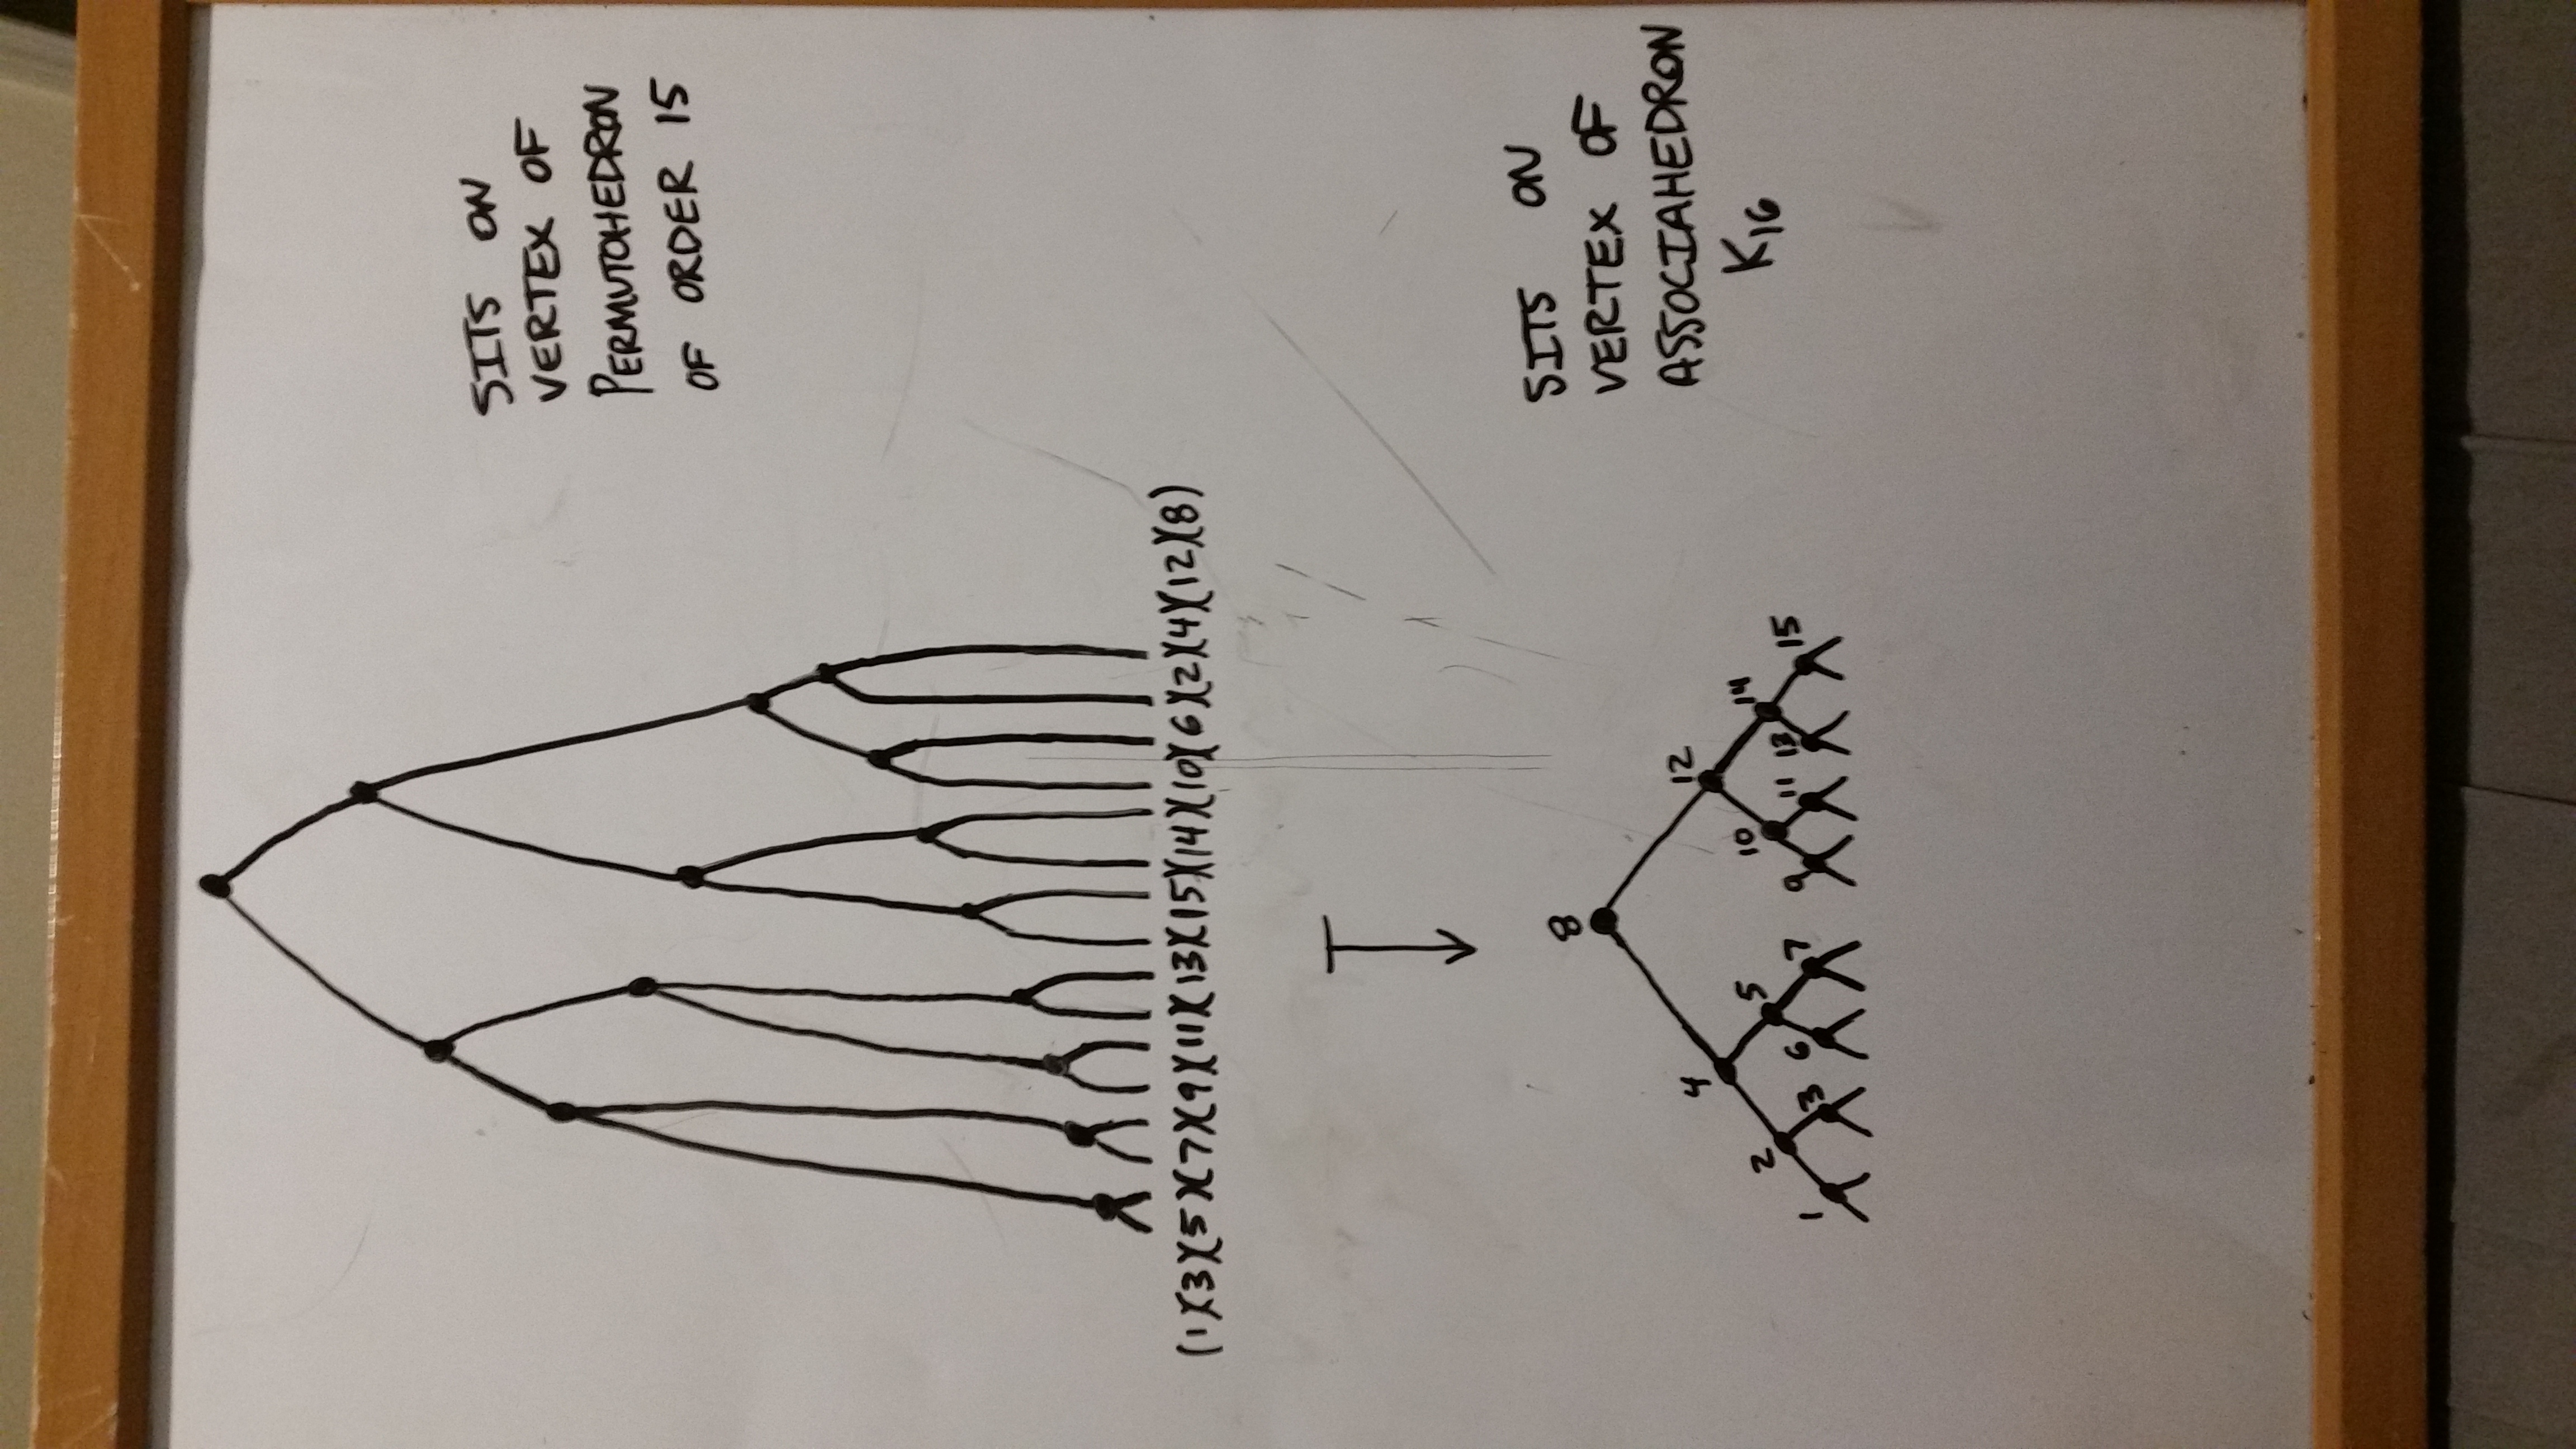 SITS ON
VERTEX OF
PERMUTOHEDRON
OF ORDER 15
(1)(3)(5)(7)(9)(11)(13)(15)(14)(10)(6)(2)(4)(12)(8)
8
4 12
2 5 10 14
1 3 6 7 9 11 13 15
SITS ON
VERTEX OF
ASSOCIAHEDRON
K16